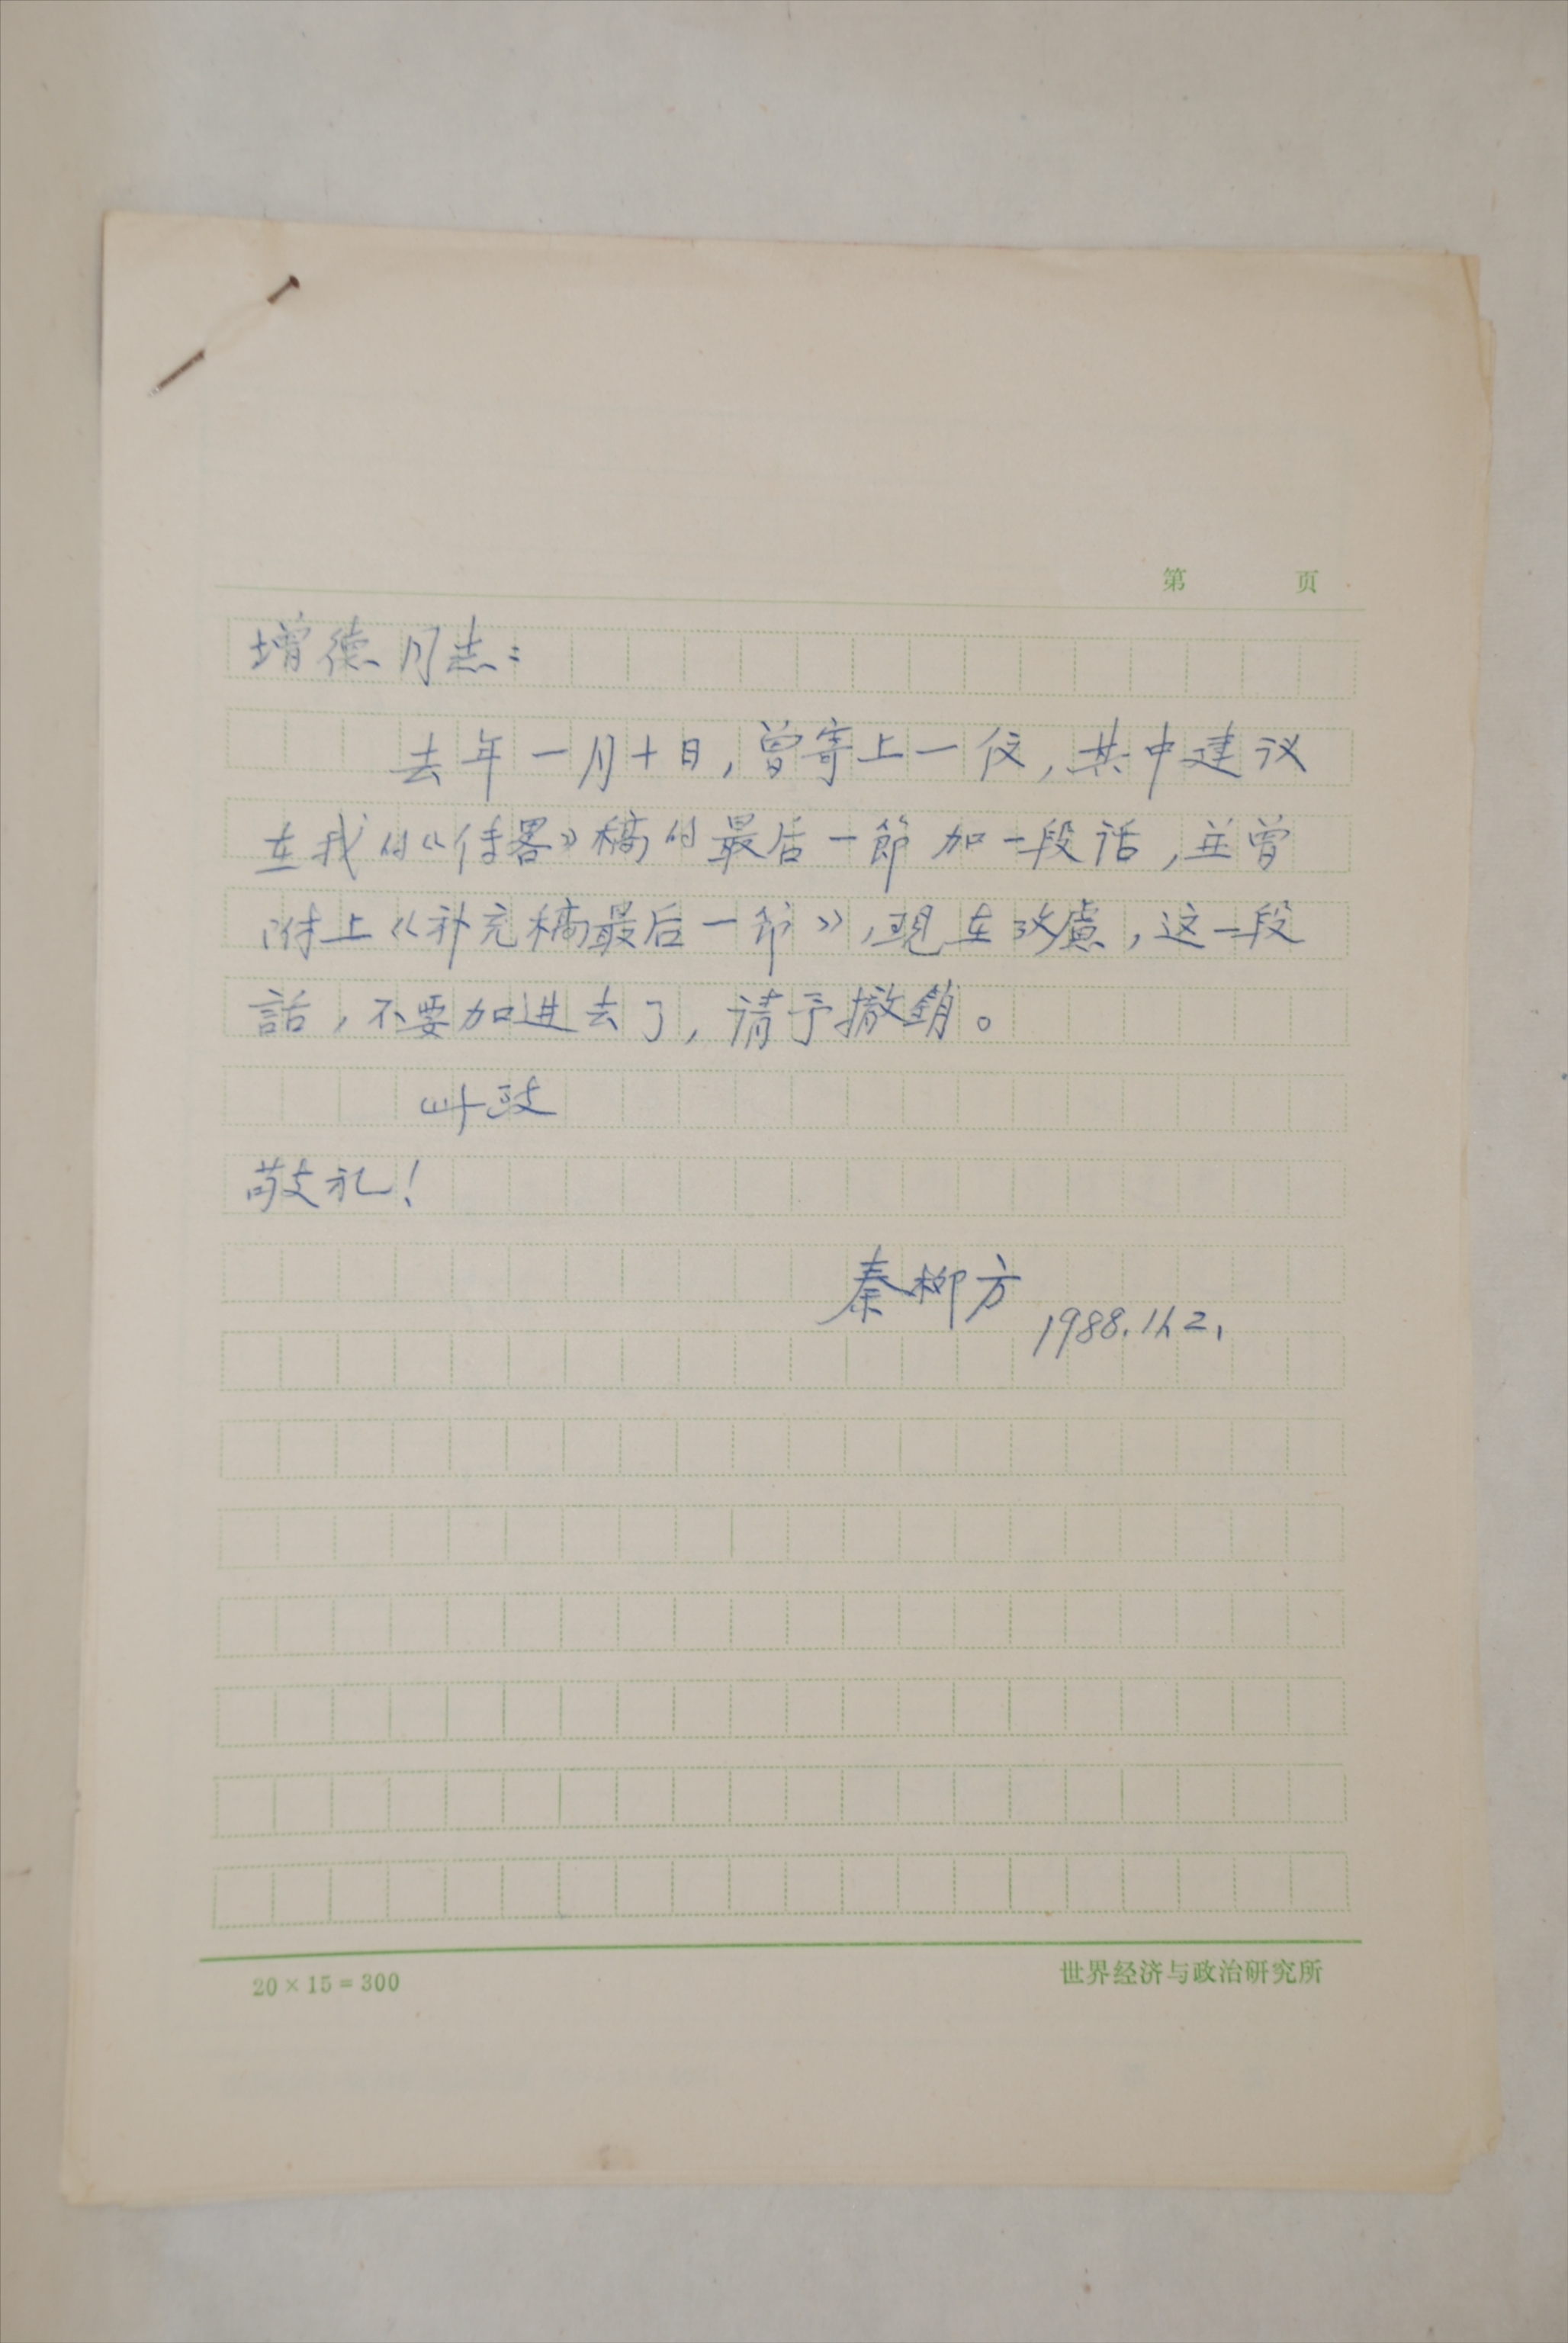 第 页
增德同志：
去年一月十日，曾寄上一信，其中建议
在我的《传畧》稿的最后一節加一段话，並曾
附上《补充稿最后一节》，現在攷慮，这一段
話，不要加进去了，请予撤銷。
此致
敬礼！
秦柳方
1988.1.12.
20×15=300
世界经济与政治研究所